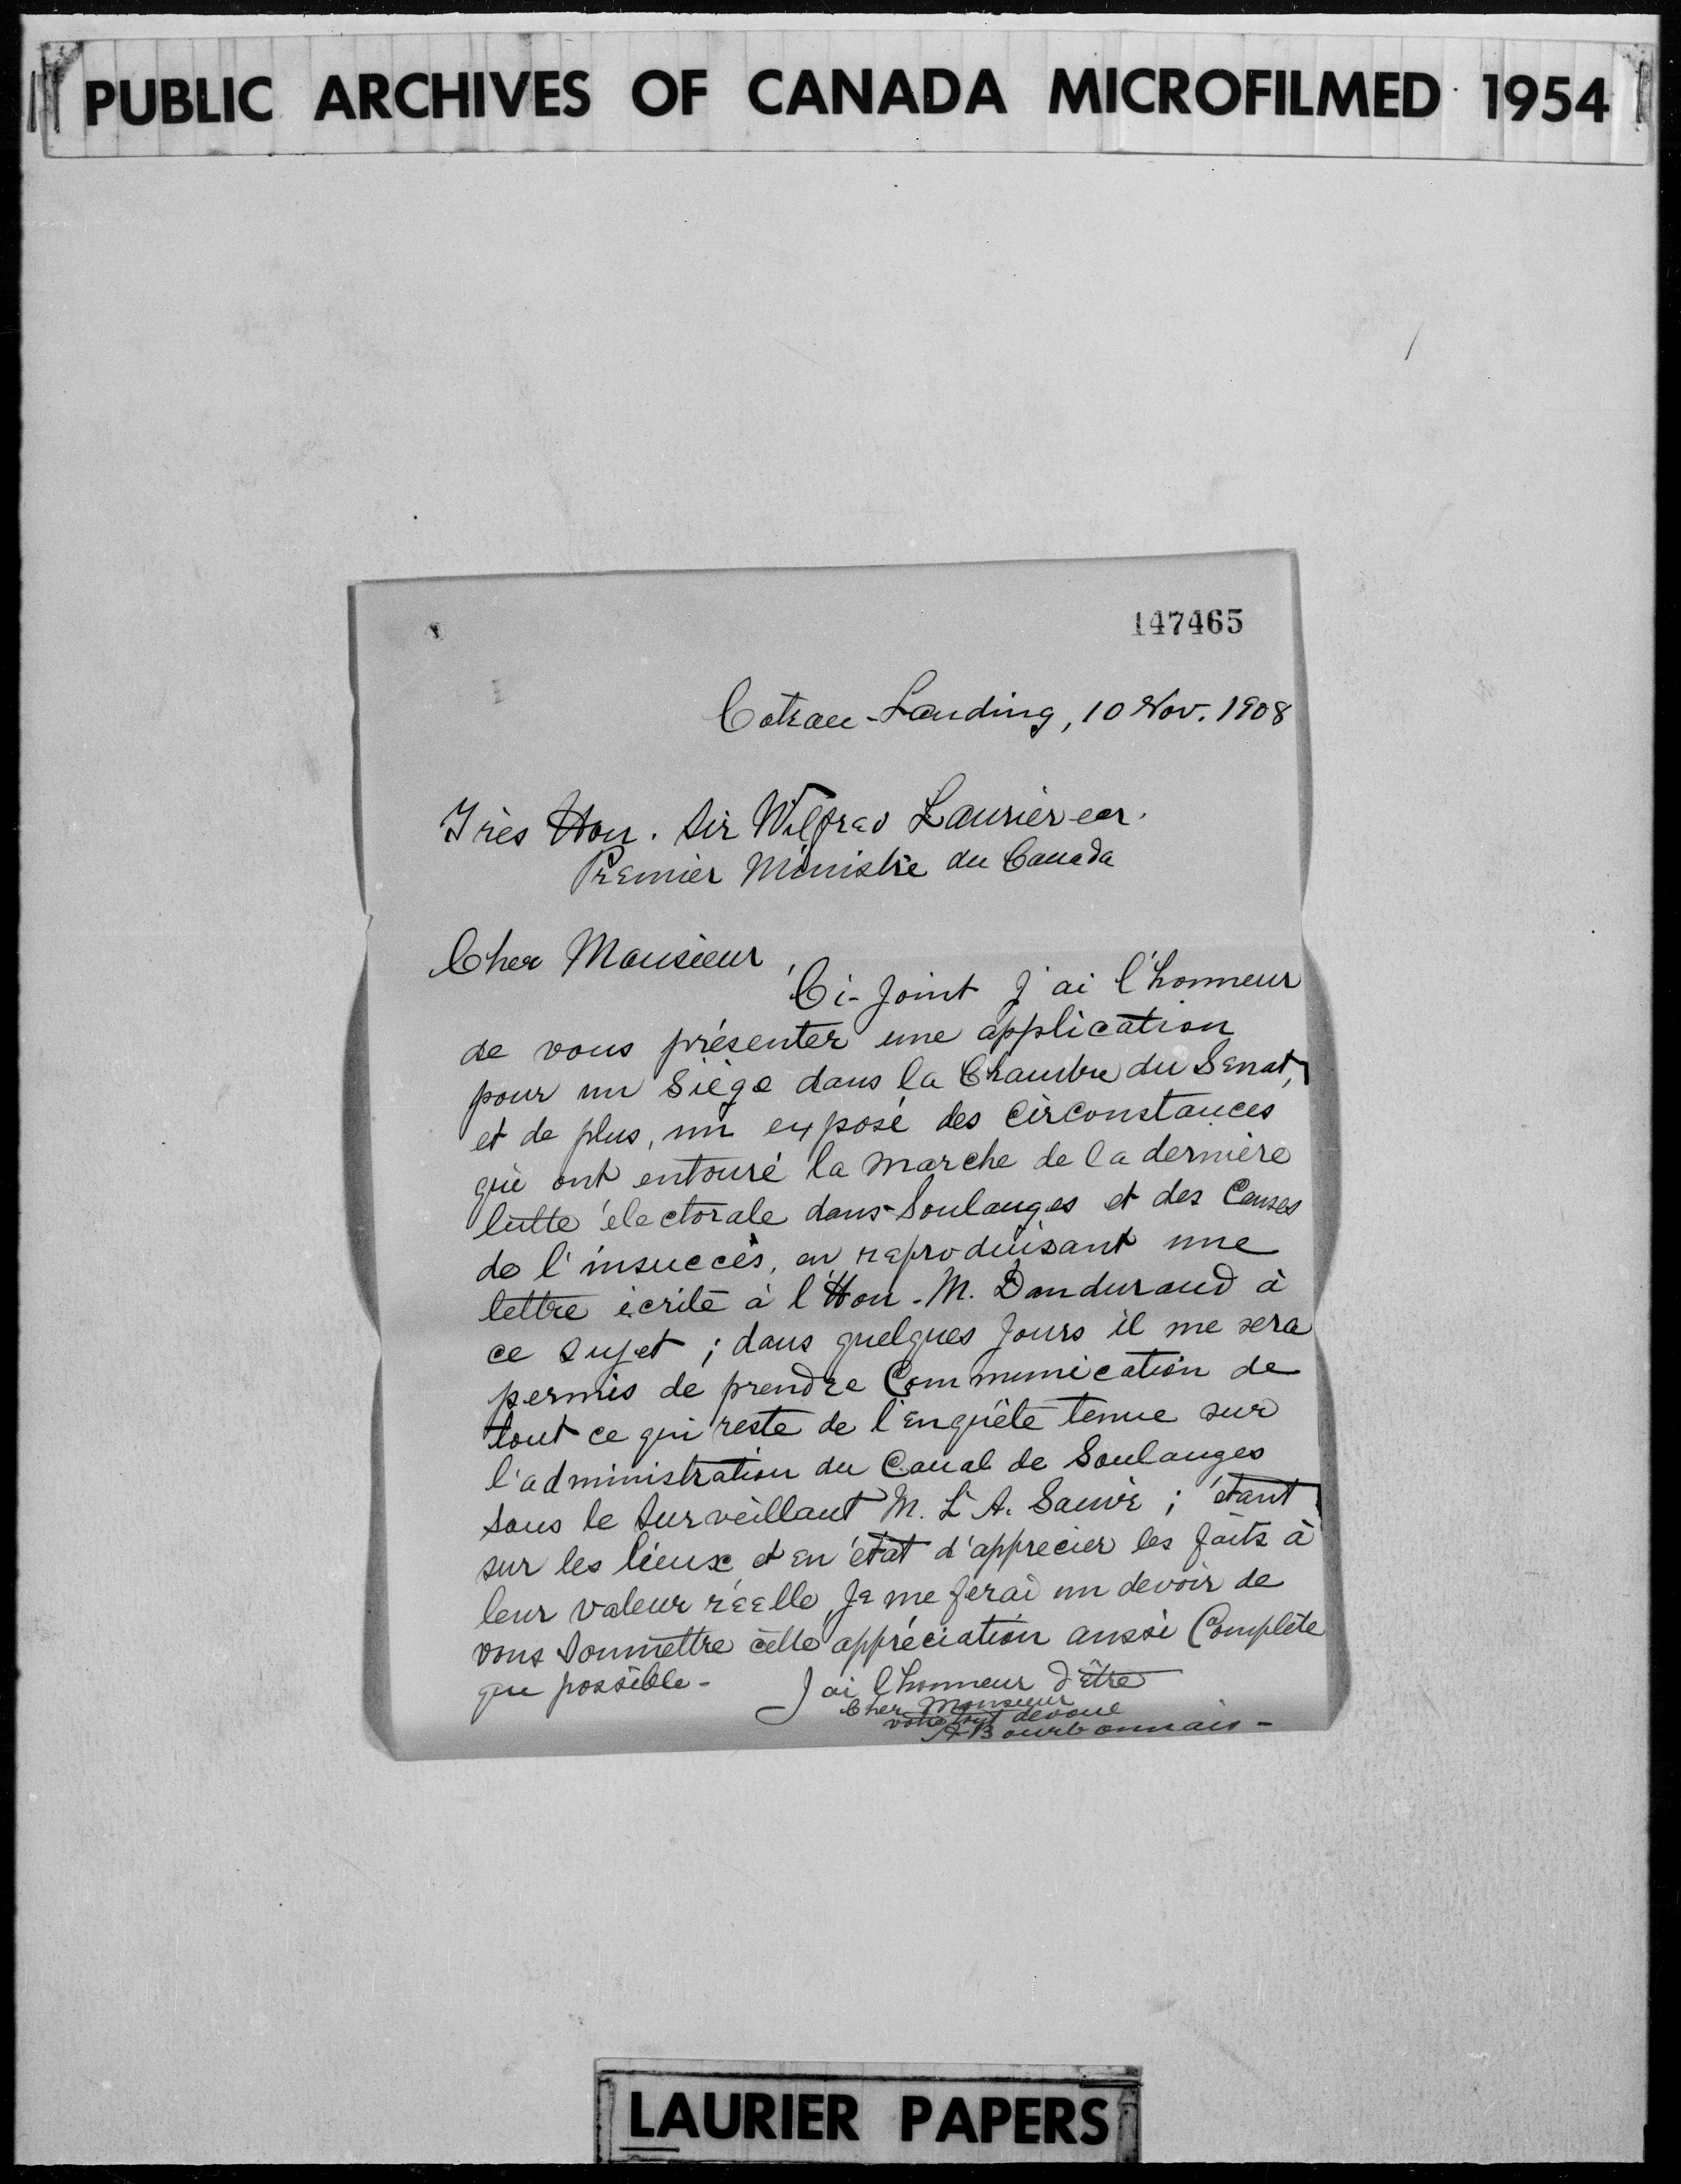 PUBLIC ARCHIVES OF CANADA MICROFILMED 1954
147465
Coteau-Landing, 10 Nov. 1908
Très Hon. Sir Wilfred Laurier
Premier Ministre du Canada
Cher Monsieur,
Ci-Joint j'ai l'honneur
de vous présenter une application
pour un Siège dans la Chambre du Sénat,
et de plus, un exposé des Circonstances
qui ont entouré la marche de la dernière
lutte électorale dans Soulanges et des Causes
de l'insuccès, en reproduisant une
lettre écrite à l'Hon. M. Dandurand à
ce sujet ; dans quelques Jours il me sera
permis de prendre Communication de
tout ce qui reste de l'Enquête tenue sur
l'administration du Canal de Soulanges
sous le Surveillant M. L. A. Sauvé ; étant
sur les lieux et en état d'apprécier les faits à
leur valeur réelle, Je me ferai un devoir de
vous soumettre cette appréciation aussi Complète
que possible -
J'ai l'honneur d'être
Cher Monsieur
votre tout dévoué
A Bourbonnais -
LAURIER PAPERS